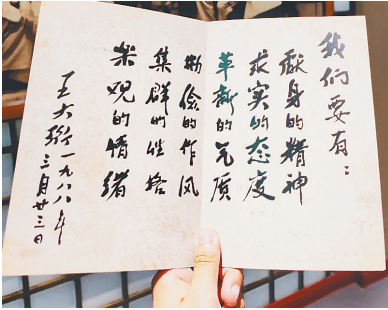 我们要有：
献身的精神
求实的态度
革新的气质
勤俭的作风
集群的性格
乐观的情绪
王大珩一九八八年
三月廿三日